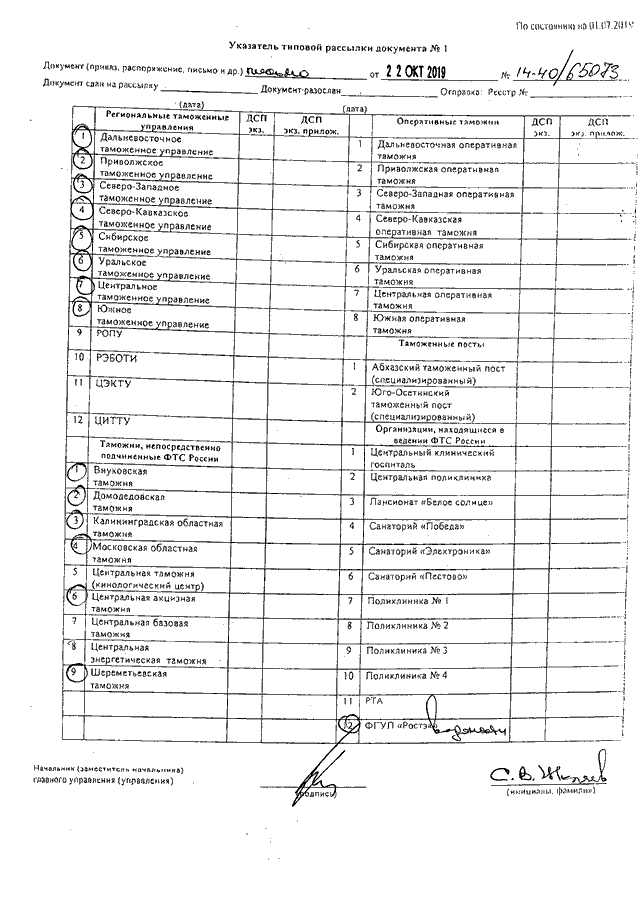 По состоянию на 01.07.2019
Указатель типовой рассылки документа № 1
Документ (приказ, распоряжение, письмо и др.) письмо от 22 ОКТ 2019 № 14-40/65073
Документ сдан на рассылку Документ разослан Отправка: Реестр №
(дата) (дата)
Региональные таможенные управления ДСП экз. ДСП экз. прилож.
1 Дальневосточное таможенное управление
2 Приволжское таможенное управление
3 Северо-Западное таможенное управление
4 Северо-Кавказское таможенное управление
5 Сибирское таможенное управление
6 Уральское таможенное управление
7 Центральное таможенное управление
8 Южное таможенное управление
9 РОПУ
10 РЭБОТИ
11 ЦЭКТУ
12 ЦИТТУ
Таможни, непосредственно подчиненные ФТС России
1 Внуковская таможня
2 Домодедовская таможня
3 Калининградская областная таможня
4 Московская областная таможня
5 Центральная таможня (кинологический центр)
6 Центральная акцизная таможня
7 Центральная базовая таможня
8 Центральная энергетическая таможня
9 Шереметьевская таможня
Оперативные таможни ДСП экз. ДСП экз. прилож.
1 Дальневосточная оперативная таможня
2 Приволжская оперативная таможня
3 Северо-Западная оперативная таможня
4 Северо-Кавказская оперативная таможня
5 Сибирская оперативная таможня
6 Уральская оперативная таможня
7 Центральная оперативная таможня
8 Южная оперативная таможня
Таможенные посты
1 Абхазский таможенный пост (специализированный)
2 Юго-Осетинский таможенный пост (специализированный)
Организации, находящиеся в ведении ФТС России
1 Центральный клинический госпиталь
2 Центральная поликлиника
3 Пансионат «Белое солнце»
4 Санаторий «Победа»
5 Санаторий «Электроника»
6 Санаторий «Пестово»
7 Поликлиника № 1
8 Поликлиника № 2
9 Поликлиника № 3
10 Поликлиника № 4
11 РТА
12 ФГУП «Ростэк
Начальник (заместитель начальника)
главного управления (управления)
(подпись) (инициалы, фамилия)
С. В.